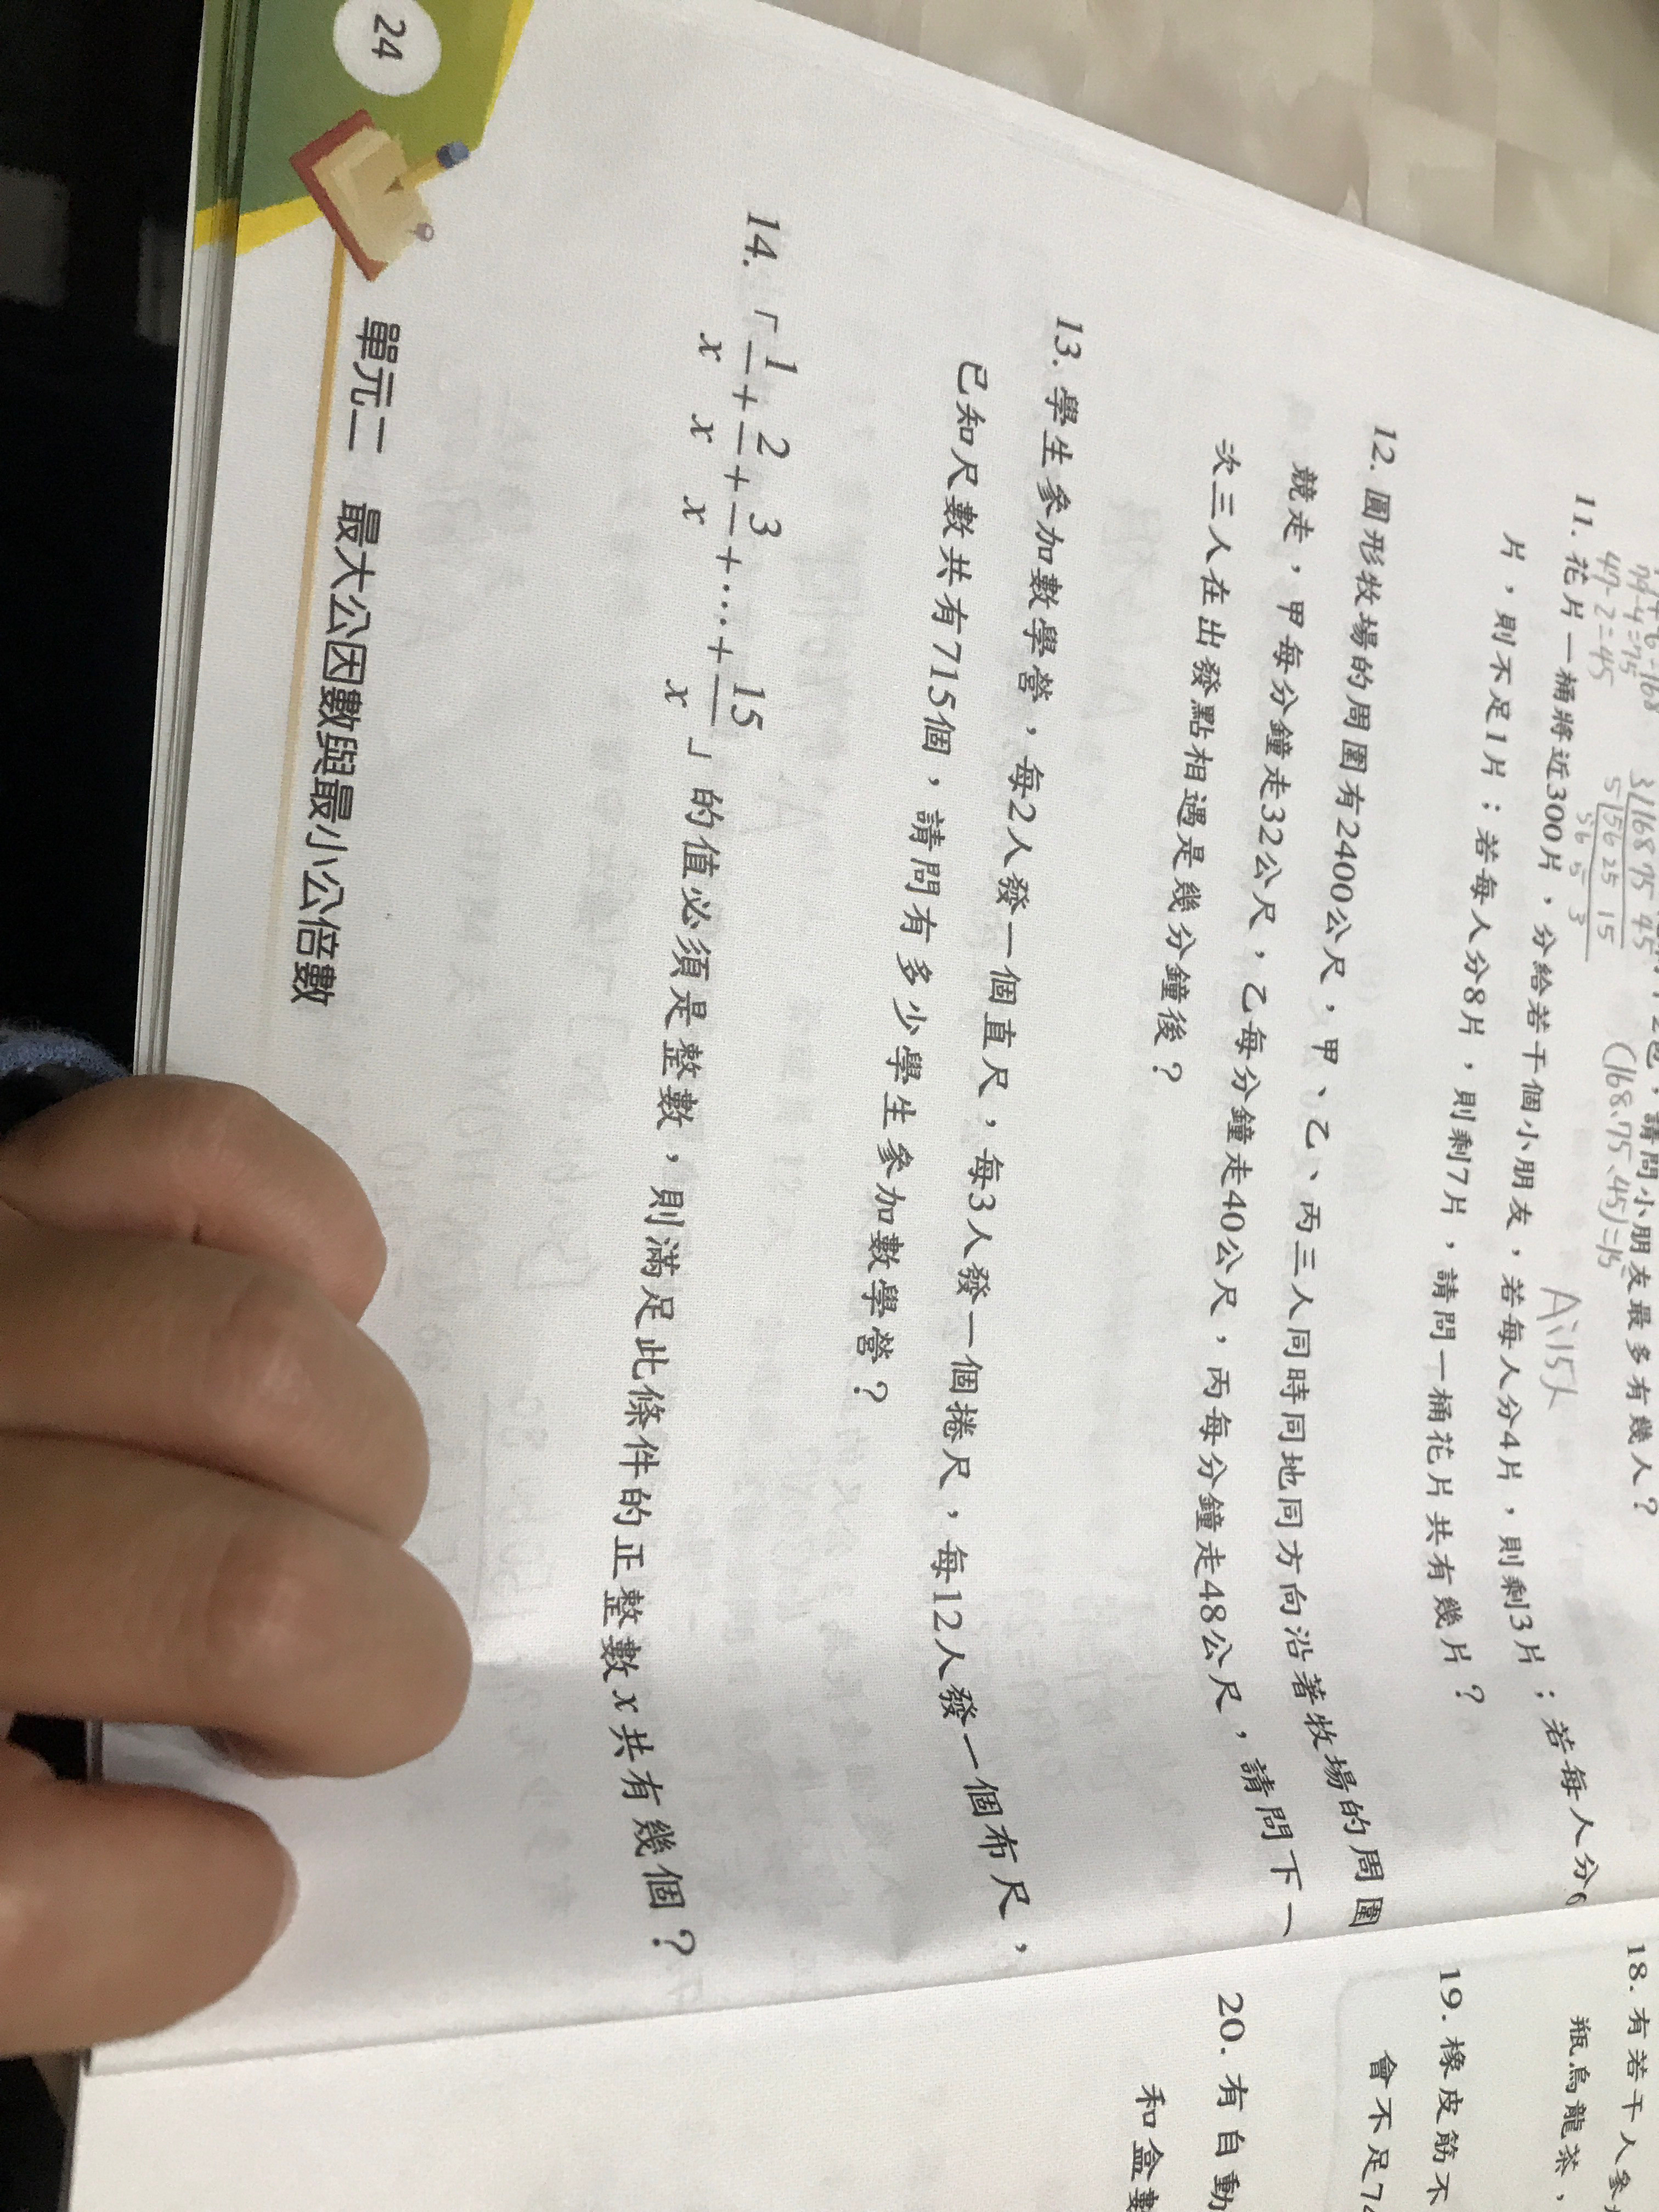 94-4=75
47-2=45
3 168 75 45
5 56 25 15
56 5 3
(168、75、45)=15
請問小朋友最多有幾人？
A:15人
11. 花片一桶將近300片，分給若干個小朋友，若每人分4片，則剩3片；若每人分6
片，則不足1片；若每人分8片，則剩7片，請問一桶花片共有幾片？
12. 圓形牧場的周圍有2400公尺，甲、乙、丙三人同時同地同方向沿著牧場的周圍
競走，甲每分鐘走32公尺，乙每分鐘走40公尺，丙每分鐘走48公尺，請問下一
次三人在出發點相遇是幾分鐘後？
13. 學生參加數學營，每2人發一個直尺，每3人發一個捲尺，每12人發一個布尺，
已知尺數共有715個，請問有多少學生參加數學營？
14. 「1/x+2/x+3/x+…+15/x」的值必須是整數，則滿足此條件的正整數x共有幾個？
24
單元二 最大公因數與最小公倍數
18. 有若干人參
瓶烏龍茶，
19. 橡皮筋不
會不足7
20. 有自動
和盒數